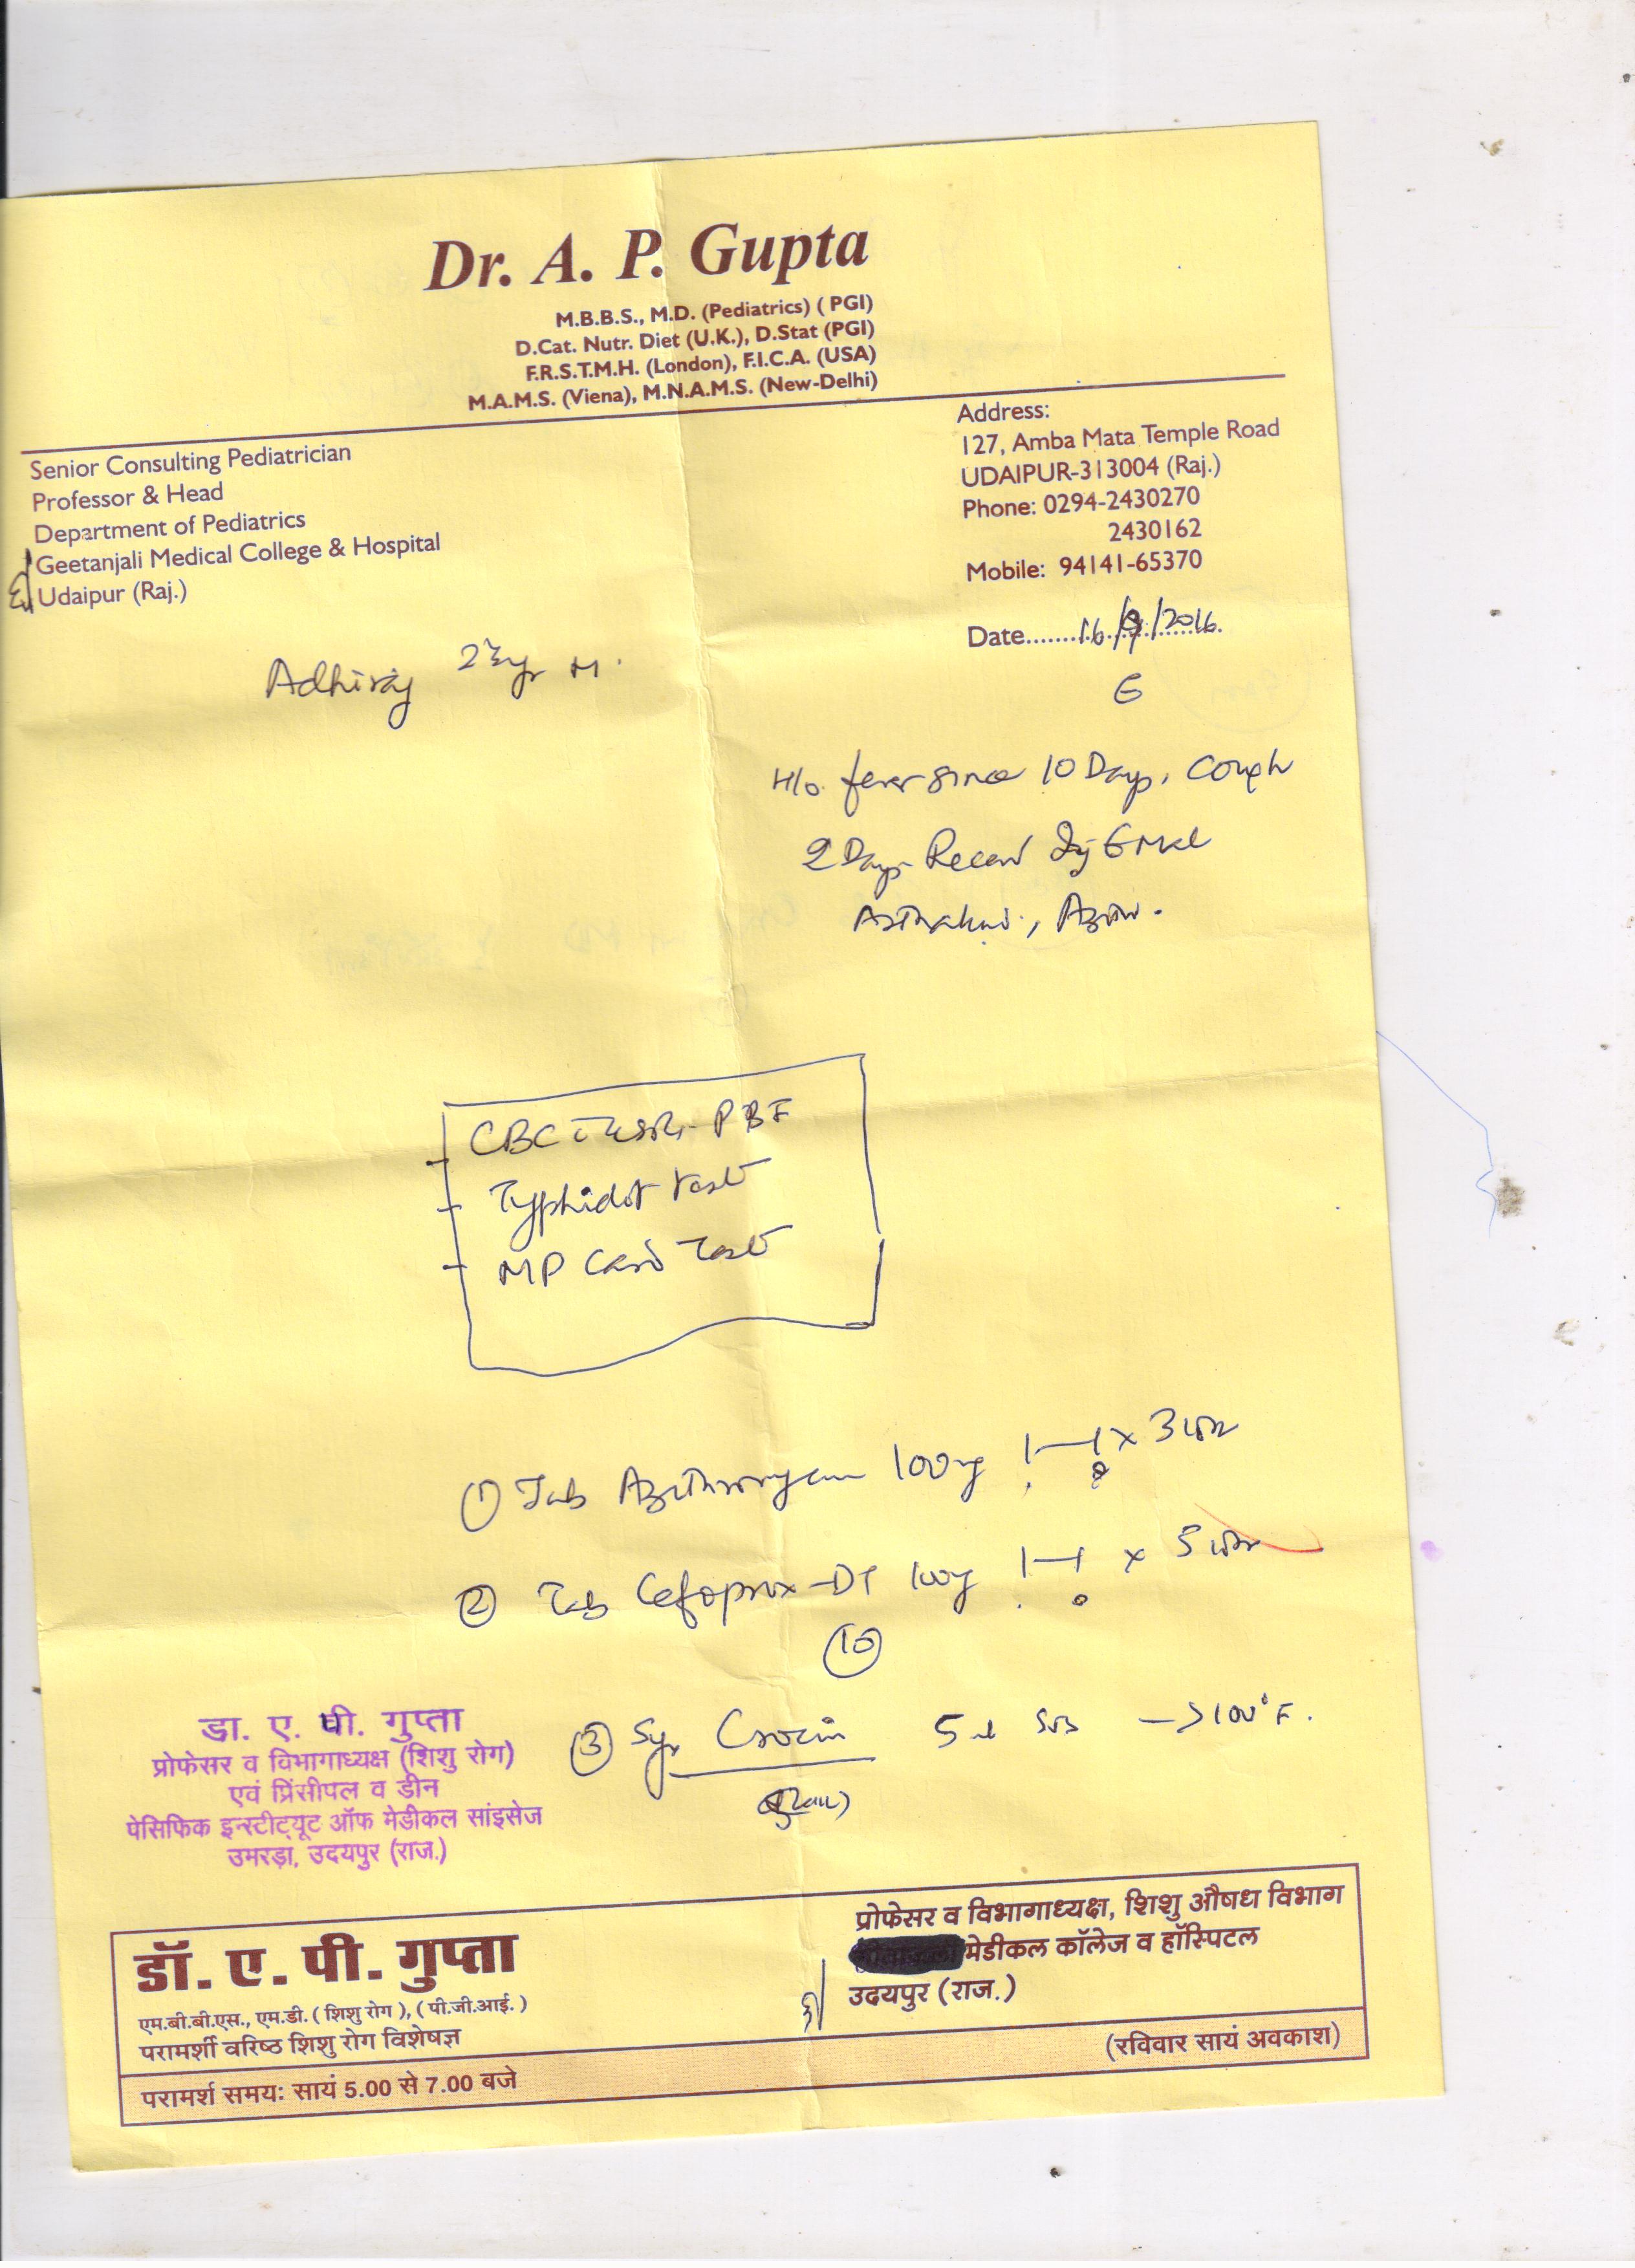 Dr. A. P. Gupta
M.B.B.S., M.D. (Pediatrics) ( PGI)
D.Cat. Nutr. Diet (U.K.), D.Stat (PGI)
F.R.S.T.M.H. (London), F.I.C.A. (USA)
M.A.M.S. (Viena), M.N.A.M.S. (New-Delhi)
Senior Consulting Pediatrician
Professor & Head
Department of Pediatrics
Geetanjali Medical College & Hospital
Udaipur (Raj.)
Address:
127, Amba Mata Temple Road
UDAIPUR-313004 (Raj.)
Phone: 0294-2430270
2430162
Mobile: 94141-65370
Date........16/9/2016
Adhiraj yr M.
H/o. fever since 10 Days, Cough
2 Days
CBC ESR, PBF
Typhidot test
MP Card Test
① Tab Azithromycin 100mg × 3
② Tab Cefoprox-DT 100mg × 5
⑩
③ Syr Crocin 5ml SOS → >100°F.
डा. ए. पी. गुप्ता
प्रोफेसर व विभागाध्यक्ष (शिशु रोग)
एवं प्रिंसीपल व डीन
पेसिफिक इन्स्टीट्यूट ऑफ मेडीकल सांइसेज
उमरड़ा, उदयपुर (राज.)
डॉ. ए. पी. गुप्ता
एम.बी.बी.एस., एम.डी. ( शिशु रोग ), ( पी.जी.आई. )
परामर्शी वरिष्ठ शिशु रोग विशेषज्ञ
प्रोफेसर व विभागाध्यक्ष, शिशु औषध विभाग
मेडीकल कॉलेज व हॉस्पिटल
उदयपुर (राज.)
(रविवार सायं अवकाश)
परामर्श समय: सायं 5.00 से 7.00 बजे